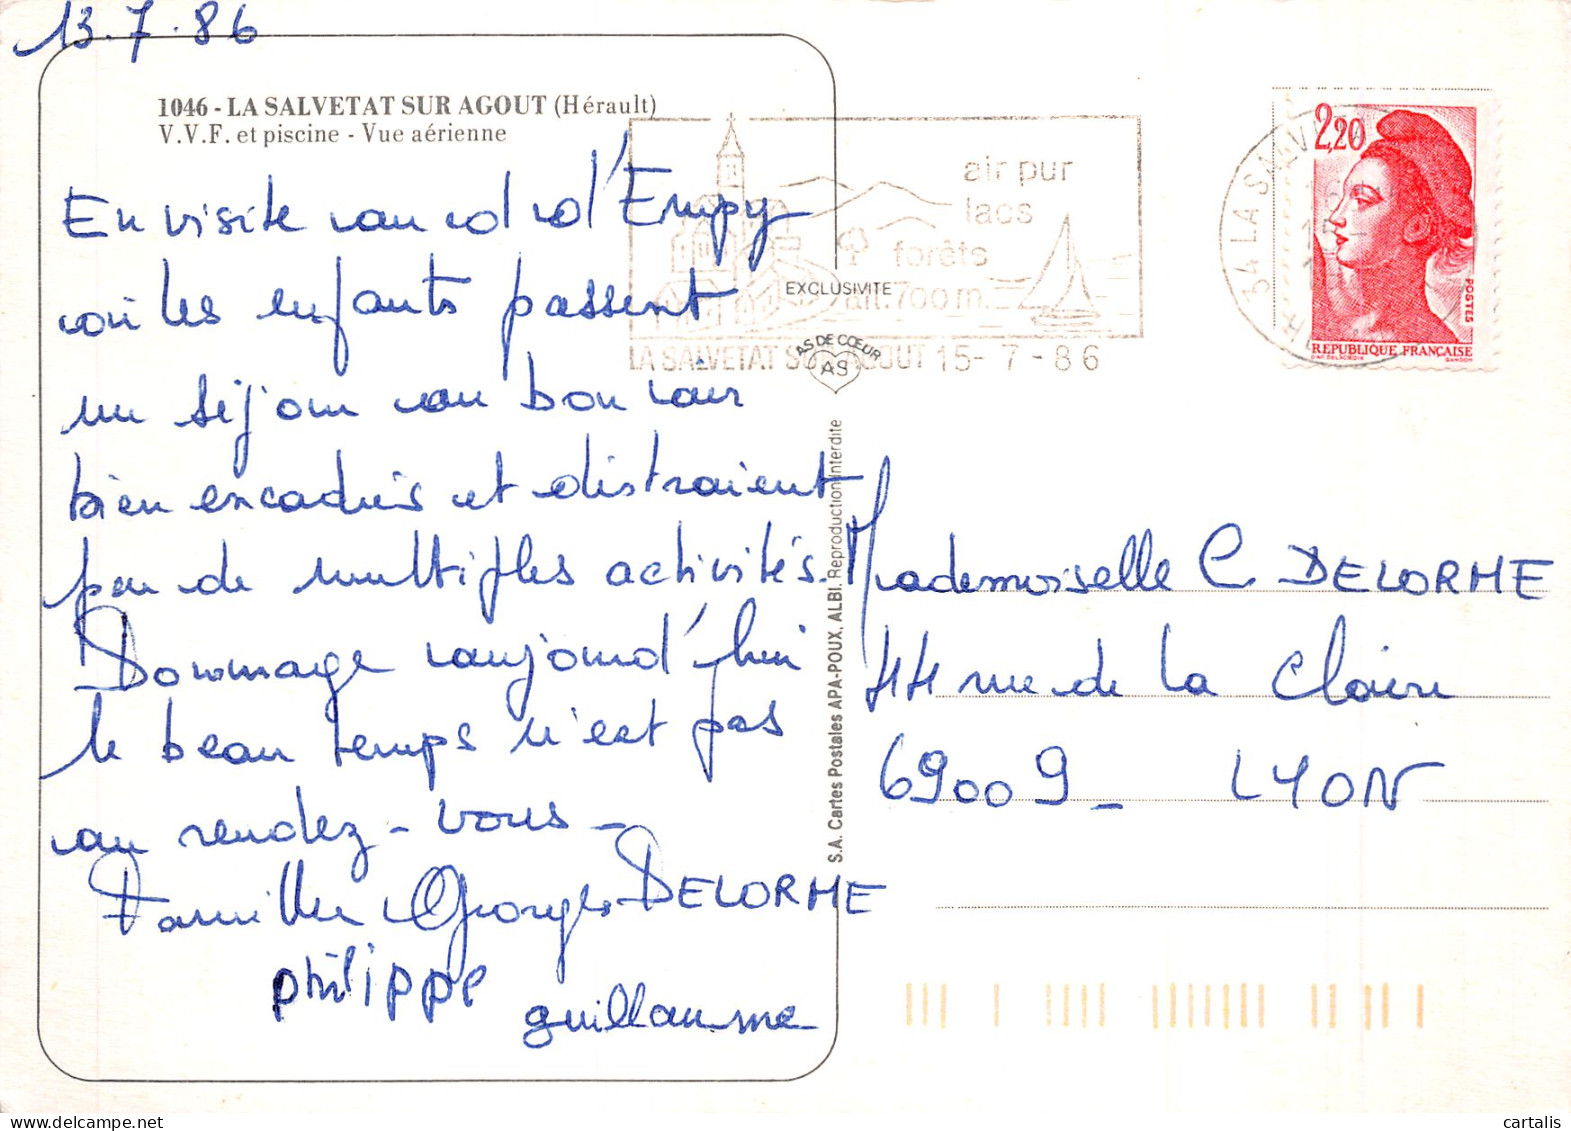 13.7.86
1046 - LA SALVETAT SUR AGOUT (Hérault)
V.V.F. et piscine - Vue aérienne
En visite au cd d'Empy
où les enfants passent
un séjour au bon air
bien encadrés et distraient
par de multiples activités.
Dommage aujourd'hui
le beau temps n'est pas
au rendez-vous-
Famille Georges DELORME
philippe
guillaume
air pur
lacs
forêts
alt. 700 m.
LA SALVETAT SUR AGOUT 15-7-86
EXCLUSIVITE
AS DE CŒUR
AS
S.A. Cartes Postales APA-POUX, ALBI. Reproduction Interdite
34 LA SALV
2,20
POSTES
REPUBLIQUE FRANÇAISE
Mademoiselle C DELORME
44 rue de la Claire
69009 - LYON
cartalis